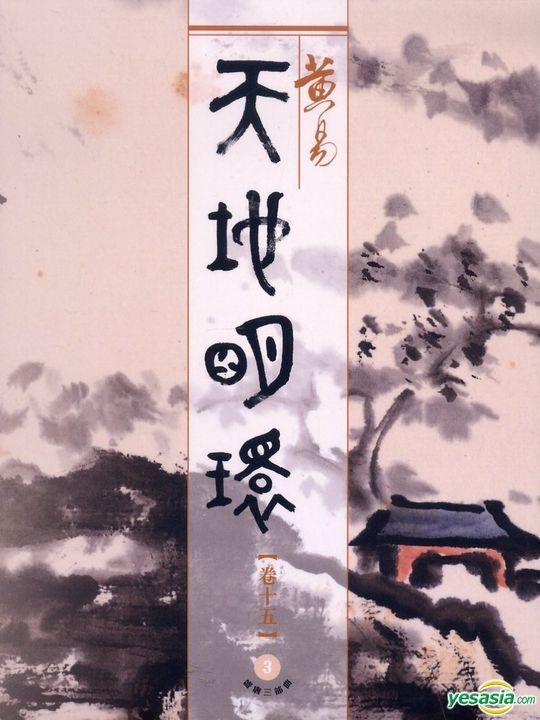 黃易
天地明環
【卷十五】
3
盛唐三部曲
yesasia.com